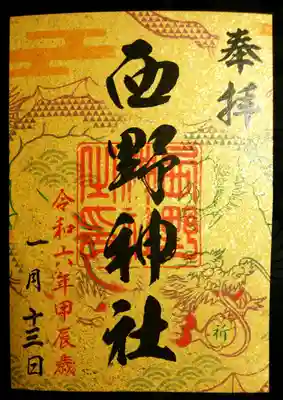 奉拝
西野神社
令和六年甲辰歳
一月十三日
祈